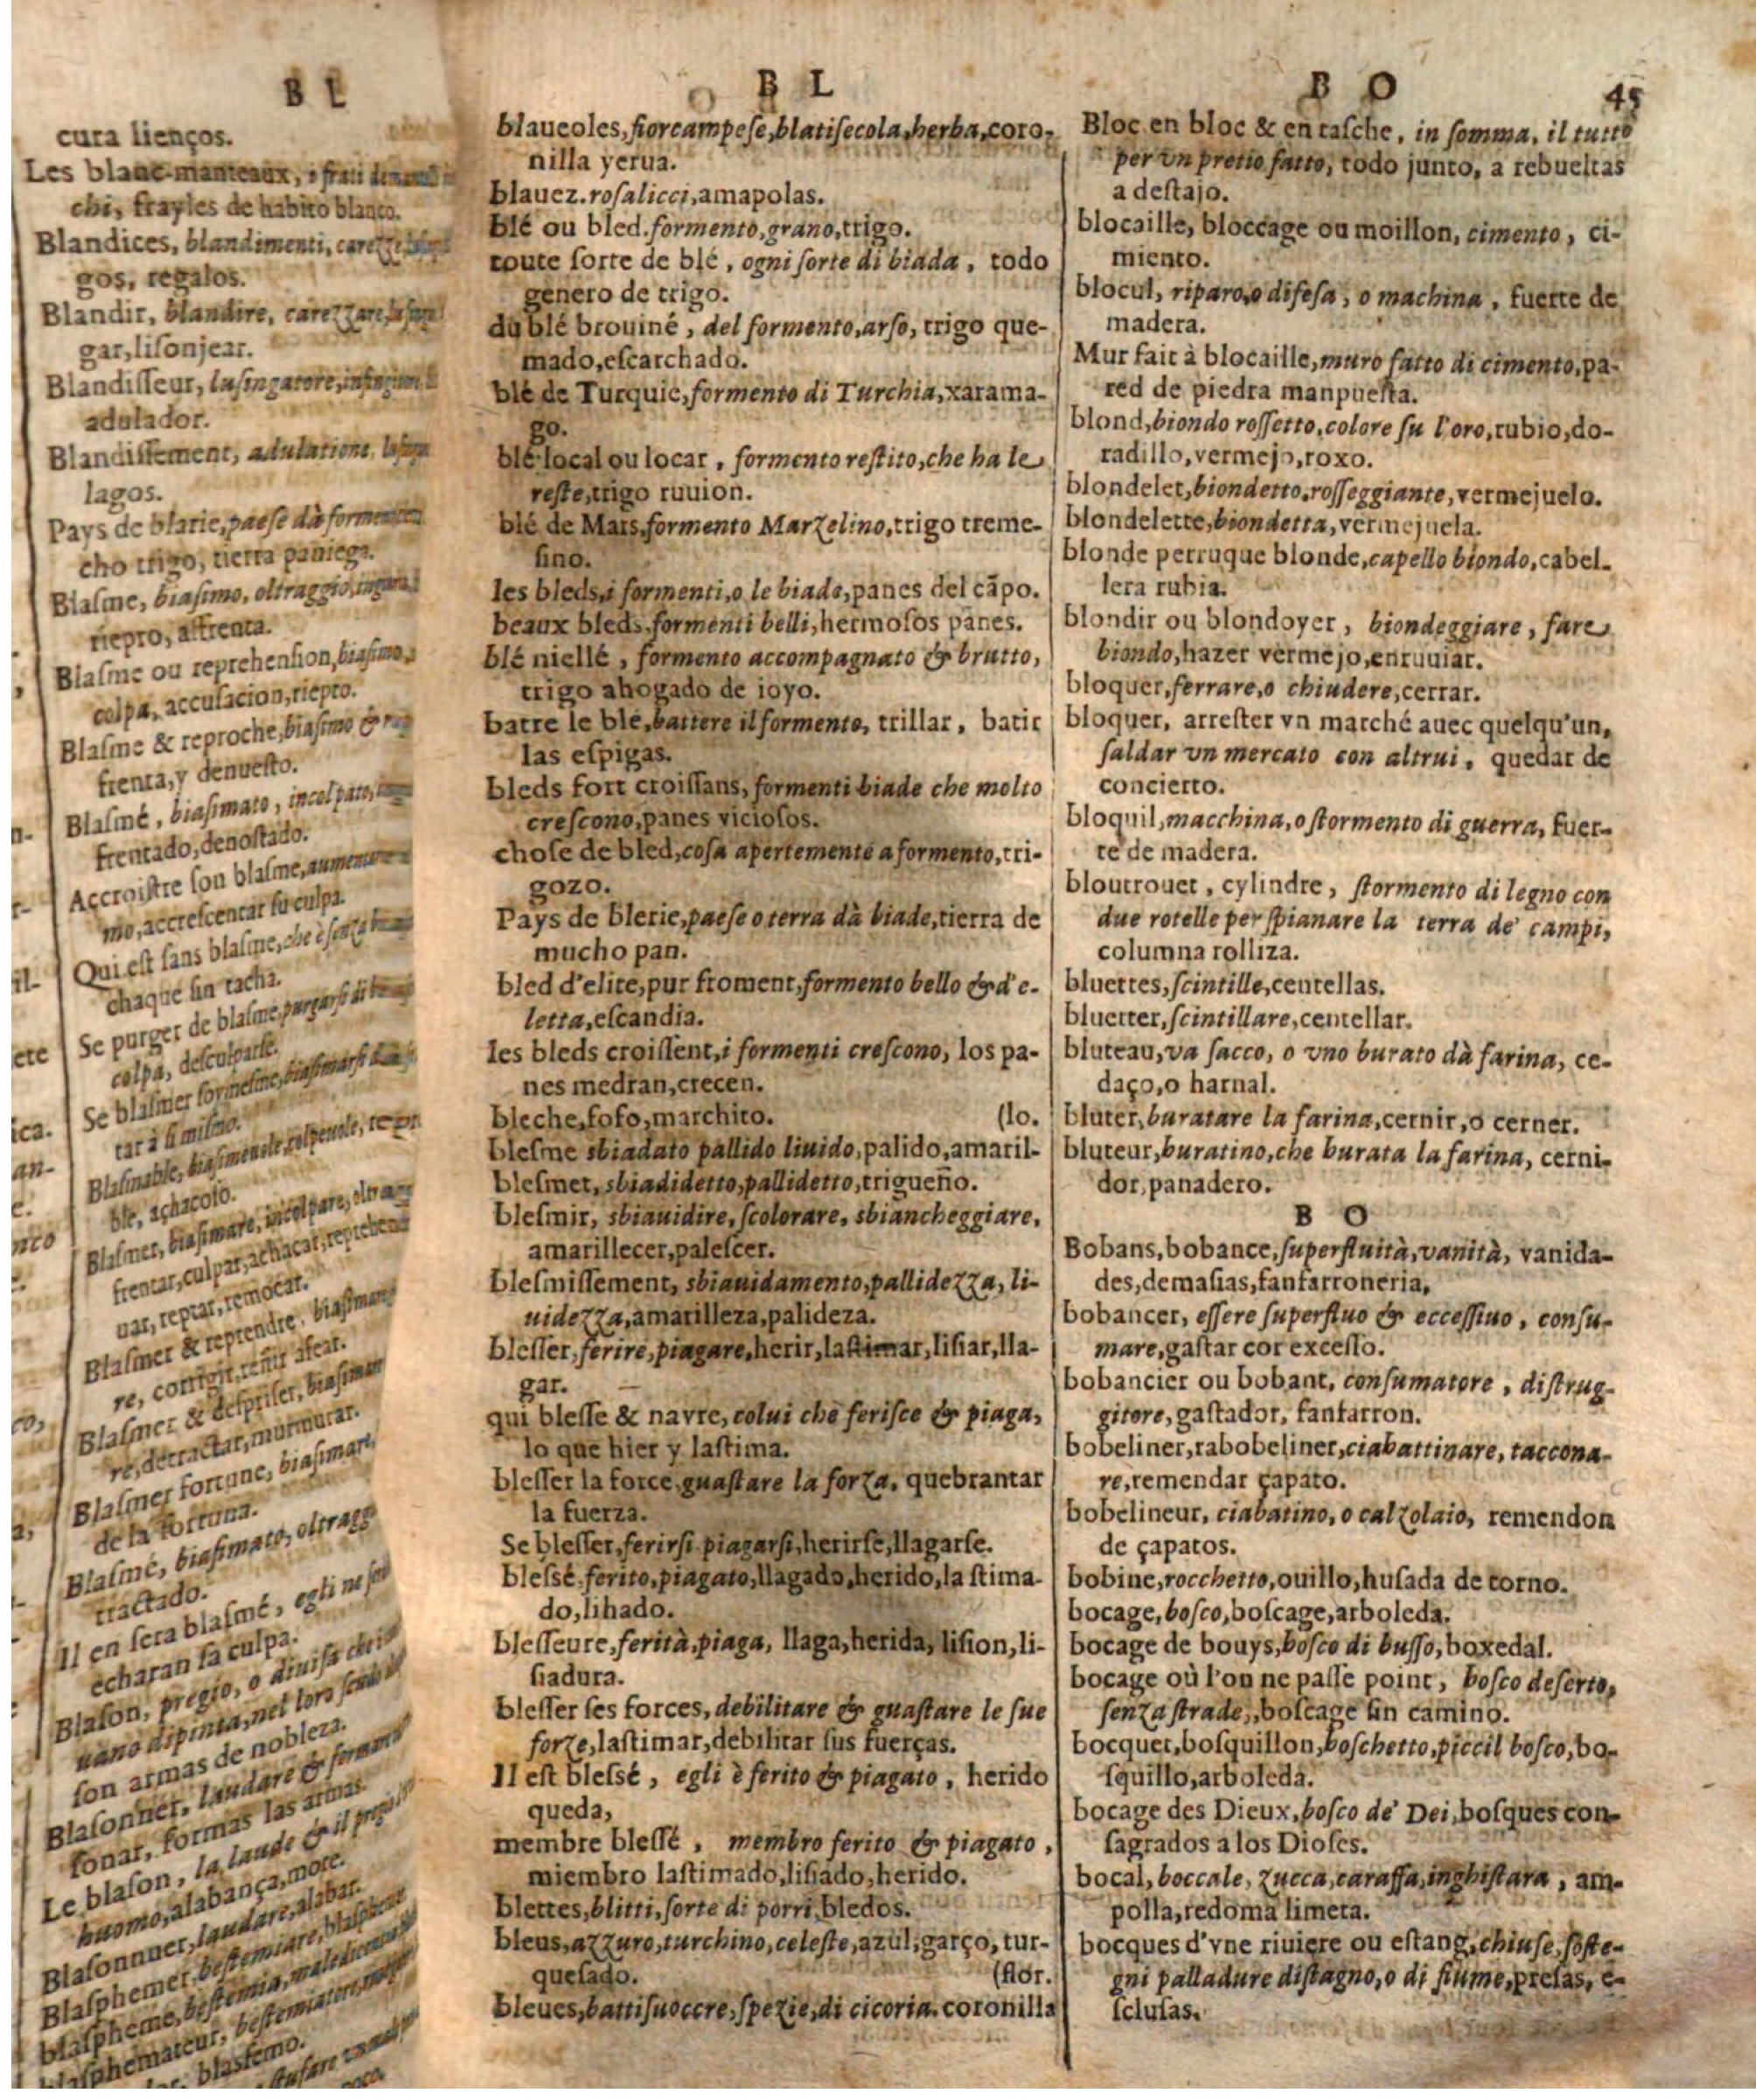 B L
cura lienços.
Les blanc-manteaux, i frati
chi, frayles de habito blanco.
Blandices, blandimenti,
gos, regalos.
Blandir, blandire, carezzare,
gar,lisonjear.
Blandisseur, lusingatore,
adulador.
Blandissement, adulatione,
lagos.
Pays de blarie,paese dà
cho trigo, tierra paniega.
Blasme, biasimo, oltraggio,
riepro, affrenta.
Blasme ou reprehension,biasimo,
colpa, accusacion,riepro.
Blasme & reproche,biasimo &
frenta,y denuesto.
Blasmé, biasimato, incolpato,
frentado,denostado.
Accroistre son blasme,
mo,accrescentar su culpa.
Qui est sans blasme,che è senza
chaque sin tacha.
Se purger de blasme,purgarsi di
colpa, desculparse.
Se blasmer soymesme,
tar à si mismo.
Blasmable, biasimevole,
ble, achacoso.
Blasmer, biasimare, incolpare,
frentar,culpar,achacar,
uar, reptar,remocar.
Blasmer & reprendre,
re, corrigir,reñir afear.
Blasmer & despriser,
re,detractar,murmurar.
Blasmer fortune, biasimare,
de la fortuna.
Blasmé, biasimato,
tractado.
Il en sera blasmé, egli ne
echaran la culpa.
Blason, pregio, o diuisa
uano dipinta,nel loro
son armas de nobleza.
Blasonner, laudare &
sonar, formas las armas.
Le blason, la laude & il
huomo,alabança,mote.
Blasonnuer,laudare,alabar.
Blasphemer,bestemiare,
blaspheme,bestemia,
blasphemateur, bestemiatore,
blasfemo.
B L
blaueoles,fiorcampese,blatisecola,herba,coro-
nilla yerua.
blauez.rosalicci,amapolas.
blé ou bled.formento,grano,trigo.
toute sorte de blé, ogni sorte di biada, todo
genero de trigo.
du blé brouiné, del formento,arso, trigo que-
mado,escarchado.
blé de Turquie,formento di Turchia,xarama-
go.
blé local ou locar, formento restito,che ha le
reste,trigo ruuion.
blé de Mars,formento Marzelino,trigo treme-
sino.
les bleds,i formenti,o le biade,panes del cãpo.
beaux bleds,formenti belli,hermosos panes.
blé niellé, formento accompagnato & brutto,
trigo ahogado de ioyo.
batre le blé,battere il formento, trillar, batir
las espigas.
bleds fort croissans,formenti biade che molto
crescono,panes viciosos.
chose de bled,cosa apertemente a formento,tri-
gozo.
Pays de blerie,paese o terra dà biade,tierra de
mucho pan.
bled d'elite,pur froment,formento bello & d'e-
letta,escandia.
les bleds croissent,i formenti crescono, los pa-
nes medran,crecen.
bleche,fofo,marchito. (lo.
blesme sbiadato pallido liuido,palido,amaril-
blesmet,sbiadidetto,pallidetto,trigueño.
blesmir, sbiauidire,scolorare, sbiancheggiare,
amarillecer,palescer.
blesmissement, sbiauidamento,pallidezza, li-
uidezza,amarilleza,palideza.
blesser,ferire,piagare,herir,lastimar,lisiar,lla-
gar.
qui blesse & navre,colui che ferisce & piaga,
lo que hier y lastima.
blesser la force,guastare la forza, quebrantar
la fuerza.
Se blesser,ferirsi piagarsi,herirse,llagarse.
blessé,ferito,piagato,llagado,herido,lastima-
do,lihado.
blesseure,ferità,piaga, llaga,herida, lision,li-
siadura.
blesser ses forces, debilitare & guastare le sue
forze,lastimar,debilitar sus fuerças.
Il est blessé, egli è ferito & piagato, herido
queda,
membre blessé, membro ferito & piagato,
miembro lastimado,lisiado,herido.
blettes,blitti,sorte di porri,bledos.
bleus,azzuro,turchino,celeste,azul,garço, tur-
quesado. (flor.
bleues,battisuoccre,spezie,di cicoria.coronilla
B O 45
Bloc en bloc & en tasche, in somma, il tutto
per vn pretio fatto, todo junto, a rebueltas
a destajo.
blocaille, bloccage ou moillon, cimento, ci-
miento.
blocul, riparo,o difesa, o machina, fuerte de
madera.
Mur fait à blocaille,muro fatto di cimento,pa-
red de piedra manpuesta.
blond,biondo rossetto,colore su l'oro,rubio,do-
radillo,vermejo,roxo.
blondelet,biondetto,rosseggiante,vermejuelo.
blondelette,biondetta,vermejuela.
blonde perruque blonde,capello biondo,cabel-
lera rubia.
blondir ou blondoyer, biondeggiare, fare
biondo,hazer vermejo,enruuiar.
bloquer,ferrare,o chiudere,cerrar.
bloquer, arrester vn marché auec quelqu'un,
saldar vn mercato con altrui, quedar de
concierto.
bloquil,macchina,o stormento di guerra, fuer-
te de madera.
bloutrouet, cylindre, stormento di legno con
due rotelle per spianare la terra de' campi,
columna rolliza.
bluettes,scintille,centellas.
bluetter,scintillare,centellar.
bluteau,va sacco, o vno burato dà farina, ce-
daço,o harnal.
bluter,buratare la farina,cernir,o cerner.
bluteur,buratino,che burata la farina, cerni-
dor,panadero.
B O
Bobans,bobance,superfluità,vanità, vanida-
des,demasias,fanfarroneria,
bobancer, essere superfluo & eccessiuo, consu-
mare,gastar cor excesso.
bobancier ou bobant, consumatore, distrug-
gitore,gastador, fanfarron.
bobeliner,rabobeliner,ciabattinare, taccona-
re,remendar çapato.
bobelineur, ciabatino, o calzolaio, remendon
de çapatos.
bobine,rocchetto,ouillo,husada de torno.
bocage,bosco,boscage,arboleda.
bocage de bouys,bosco di busso,boxedal.
bocage où l'on ne passe point, bosco deserto,
senza strade,,boscage sin camino.
bocquet,bosquillon,boschetto,piccil bosco,bo-
squillo,arboleda.
bocage des Dieux,bosco de' Dei,bosques con-
sagrados a los Dioses.
bocal, boccale, zucca,caraffa,inghistara, am-
polla,redoma limeta.
bocques d'vne riuiere ou estang,chiuse,soste-
gni palladure distagno,o di fiume,presas, e-
sclusas.